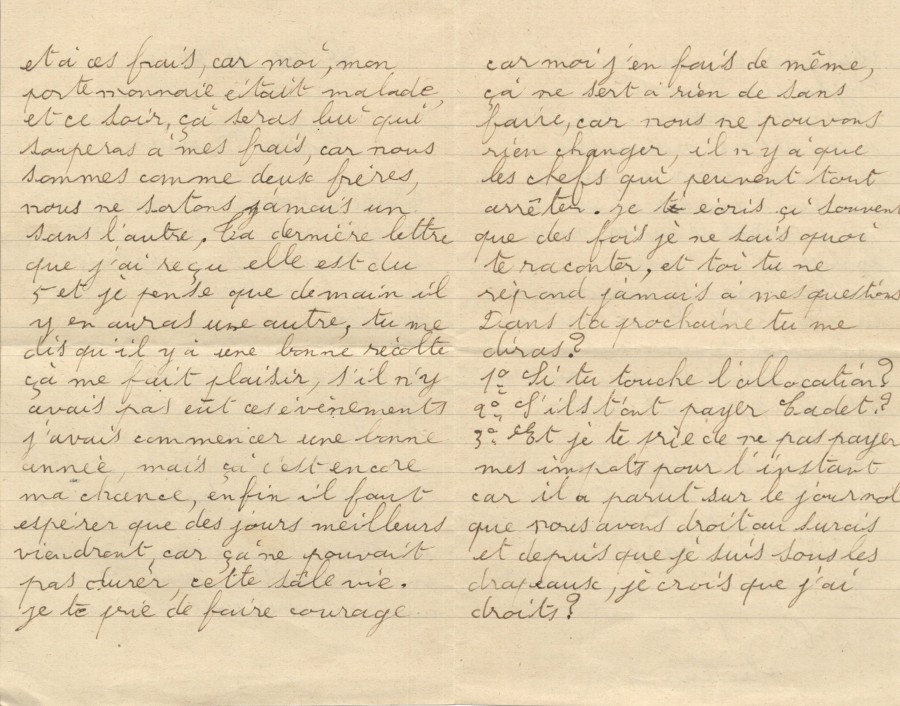 et à ces frais, car moi, mon
porte monnaie était malade,
et ce soir, çà seras lui qui
souperas à mes frais, car nous
sommes comme deux frères,
nous ne sortons jamais un
sans l'autre. Ta dernière lettre
que j'ai reçu elle est du
5 et je pense que demain il
y en auras une autre, tu me
dis qu'il y à une bonne récolte
çà me fait plaisir, s'il n'y
avais pas eût ces évènements
j'avais commencer une bonne
année, mais çà c'est encore
ma chance, enfin il faut
espérer que des jours meilleurs
viendront, car çà ne pouvait
pas durer, cette sâle vie.
je te prie de faire courage
car moi j'en fais de même,
çà ne sert à rien de sans
faire, car nous ne pouvons
rien changer, il n'y à que
les chefs qui peuvent tout
arrêter. Je te écris çi souvent
que des fois je ne sais quoi
te raconter, et toi tu ne
répond jamais à mes questions
Dans ta prochaine tu me
diras?
1º Si tu touche l'allocation?
2º S'ils t'ont payer Cadet?
3º Et je te prie de ne pas payer
mes impots pour l'instant
car il a parut sur le journal
que nous avons droit au sursis
et depuis que je suis sous les
drapeaux, je crois que j'ai
droits?